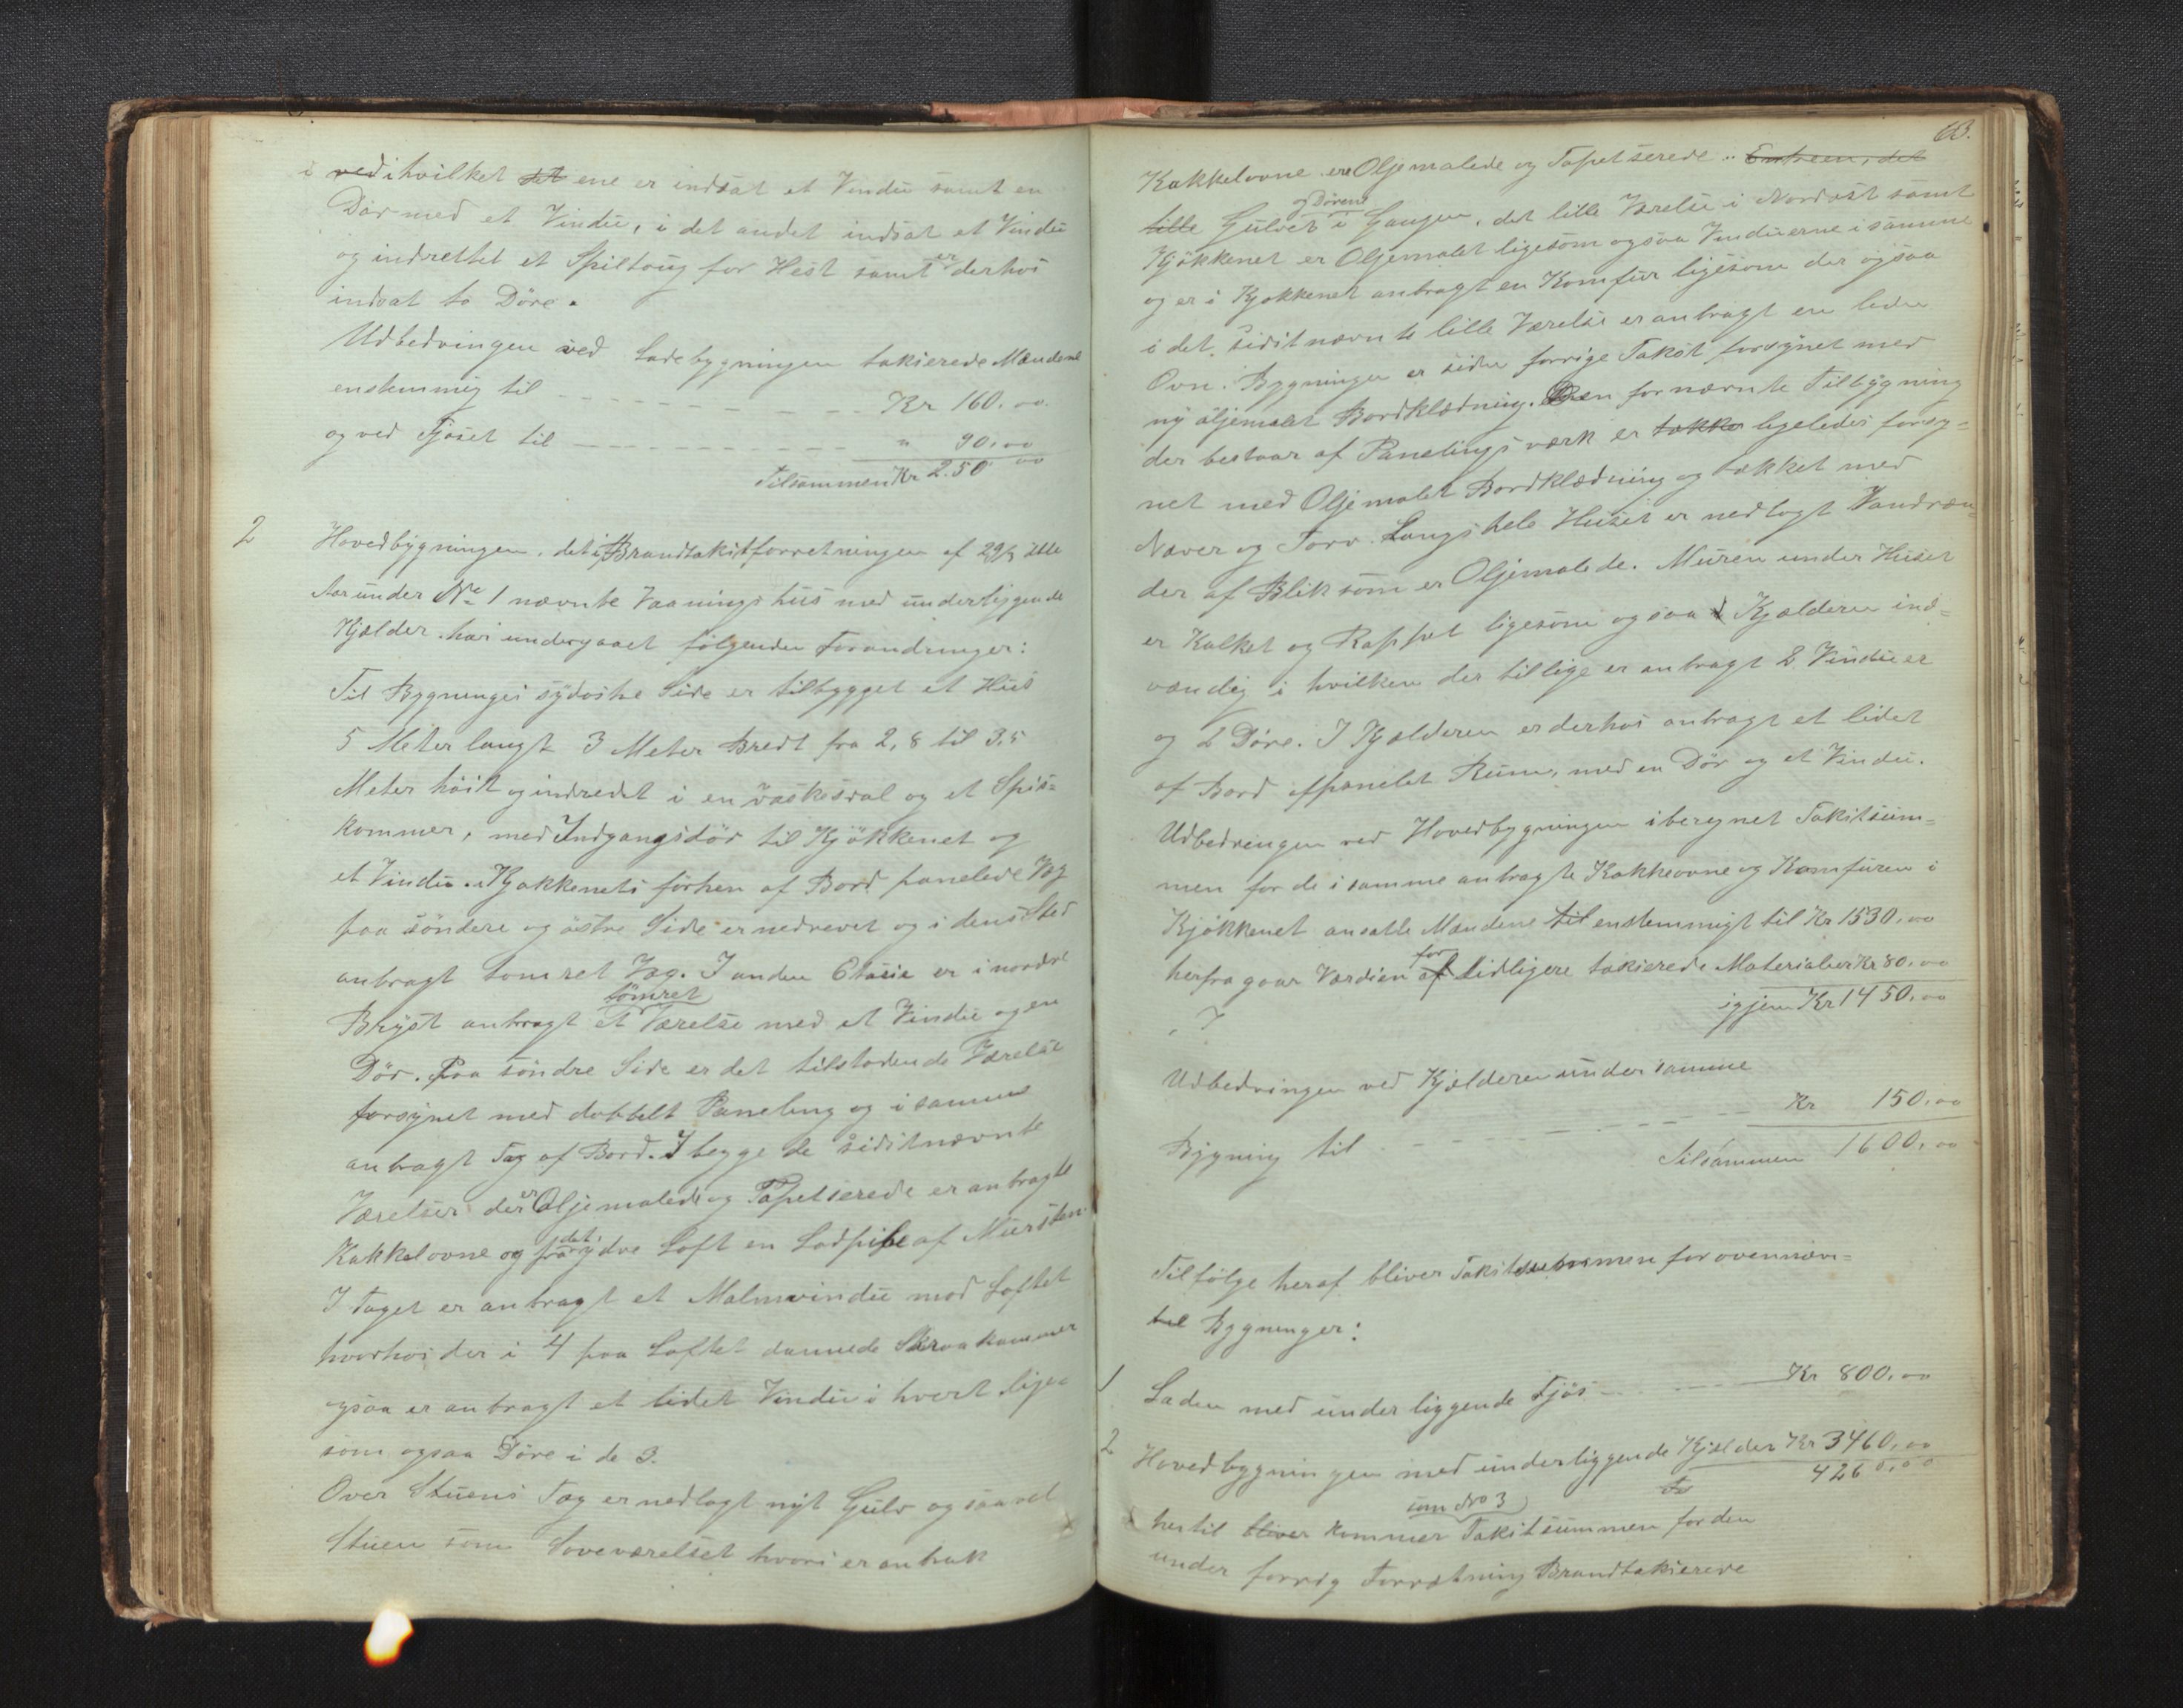 i ved ihvilket det ene er indsat et Vindu samt en
Dør med et Vindu, i det andet indsat et Vindu
og indrettet et Spiltoug for Hest samt er derhos
indsat to Döre.
Udbedringen ved Ladebygningen taxerede Mændene
enstemmig til Kr 160.00
og ved Fjöset til " 90.00
Tilsammen Kr 2.50 00
2 Hovedbygningen. det i Brandtakstforretningen af 29/3
Aar under No 1 nævnte Vaaningshus med underliggende
Kjælder. har undergaaet følgende Forandringer:
Til Bygninges sydøstre Side er tilbygget et Hus
5 Meter langt 3 Meter Bredt fra 2,8 til 3,5
Meter höit og indredet i en og et Spis=
kammer, med Indgangsdör til Kjökkenet og
et Vindu. Kjøkkenets förhen af Bord panelede Væg
paa söndre og östre Side er nedrevet og i dens Sted
anbragt tömret Væg. I anden Etasie er i nordre
Bryst anbragt et tömret Værelse med et Vindu og en
Dör. Paa söndre Side er det tilstødende Værelse
forsynet med dobbelt Paneling og i samme
anbragt Tag af Bord. I begge de sidstnævnte
Værelser der er Oljemalede og Tapetserede er anbragte
Kakkelovne og fra det ydre Loft en Lodpibe af Mursten.
I Taget er anbragt et Malmvindu mod Loftet
hvorhos der i 4 paa Loftet dannede Skraakammer
ogsaa er anbragt et lidet Vindu i hvert lige=
som ogsaa Döre i de 3.
Over Stuens Tag er nedlagt nyt Gulv og saavel
Stuen som Soveværelset hvori er anbrak
63.
Kakkelovne. ere Oljemalede og Tapetserede. Entreen, det
lille Gulvet og Dörene i Gangen. det lille Værelse i Nordøst samt
Kjökkenet er Oljemalet ligesom ogsaa Vinduerne i samme
og er i Kjøkkenet anbragt en Komfur ligesom der ogsaa
i det sidstnævnte lille Værelse er anbragt en liden
Ovn. Bygningen er siden forrige Takst forsynet med
ny oljemalet Bordklædning. Den fornævnte Tilbygning
der bestaar af Panelingsværk er takke ligeledes forsy=
net med Oljemalet Bordklædning og tækket med
Næver og Torv. Langs hele Huset er nedlagt Vandren=
der af Blik som er Oljemalede. Muren under Huset
er Kalket og Rappet ligesom ogsaa Kjælderen ind=
vendig i hvilken der tillige er anbragt 2 Vinduer
og 2 Döre. I Kjælderen er derhos anbragt et lidet
af Bord afpanelet Rum, med en Dör og et Vindu.
Udbedringen ved Hovedbygningen iberegnet Takstsum=
men for de i samme anbragte Kakkeovne og Komfuren i
Kjökkenet ansatte Mændene til enstemmigt til Kr 1530.00
herfra gaar Værdien af for tidligere taxerede Materialier Kr 80.00
igjen Kr 1450.00
Udbedringen ved Kjælderen under samme
Bygning til Kr 150.00
Tilsammen 1600.00
Tilfölge heraf bliver Takstsummen for ovennævn=
te Bygninger:
1 Laden med underliggende Fjös Kr 800.00
2 Hovedbygningen med underliggende Kjælder Kr 3460.00
4260.00
hertil bliver kommer Takstsummen for den som No 3
under forrig Forretning Brandtakserede